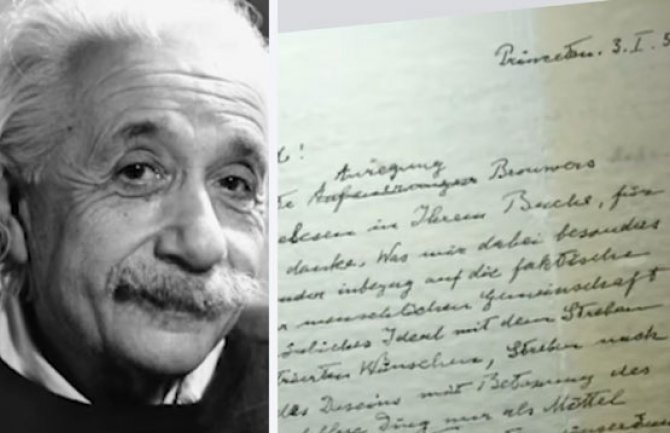 Princeton. 3. I. 5
!
Anregung
Brouwers
elesen in Ihrem Buche, für
danke. Was mir dabei besonders
inbezug auf die faktische
r menschlichen Gemeinschaft
önliches Ideal mit dem Streben
Wünschen, Streben nach
des Daseins mit Betonung des
Ding nur als Mittel